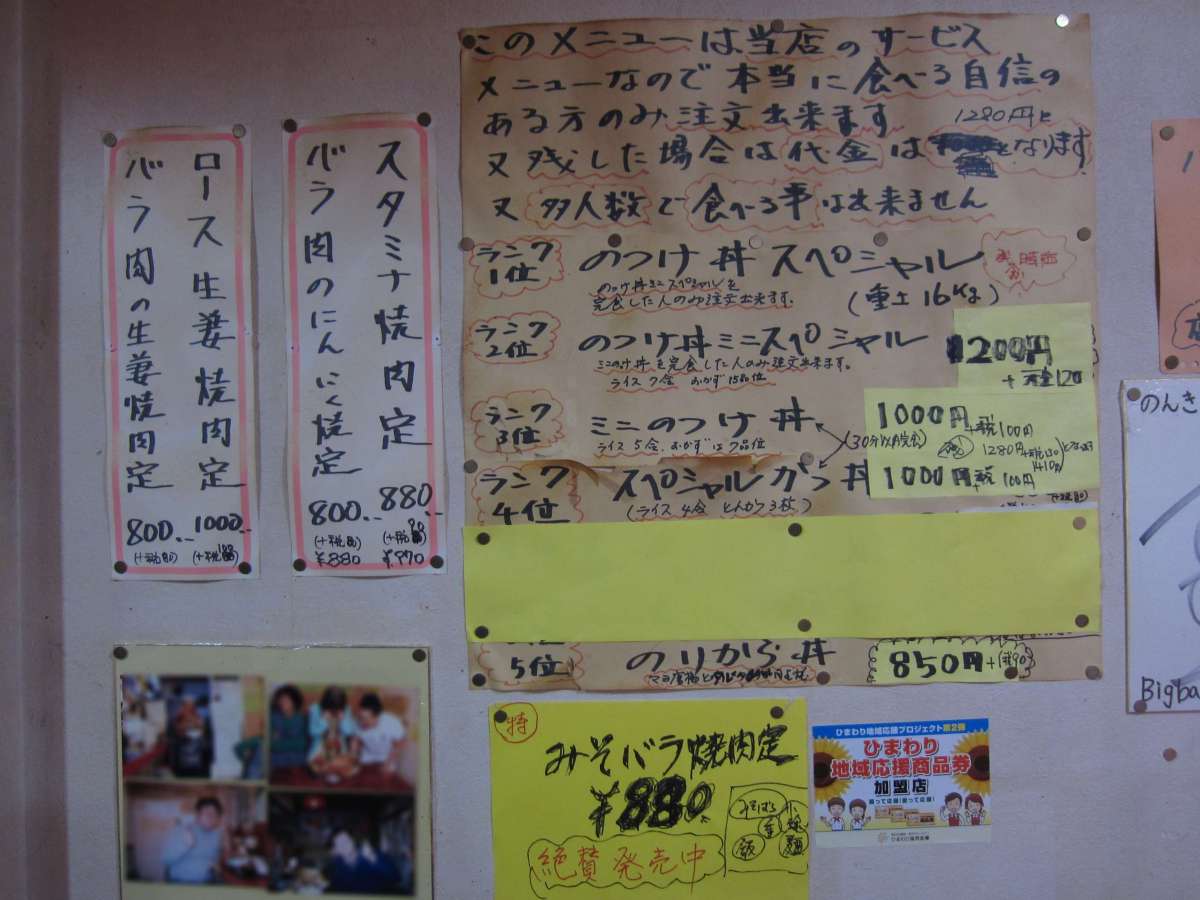 このメニューは当店のサービス
メニューなので本当に食べる自信の
ある方のみ注文出来ます
1280円と
又残した場合は代金はとなります
又多人数で食べる事は出来ません
ランク
1位
のっけ丼スペシャル
のっけ丼ミニスペシャルを
完食した人のみ注文出来ます。
(重土16Kg)
ランク
2位
のっけ丼ミニスペシャル
ミニのっけ丼を完食した人のみ注文出来ます。
ライス7合 おかず15品位
1200円
ランク
3位
ミニのっけ丼
ライス5合、おかずは7品位
1000円
+税100円
1280円
ランク
4位
スペシャルかつ丼
(ライス4合 とんかつ3枚)
1000円+税100円
5位
のりから丼
850円+(税90)
スタミナ焼肉定 880..
¥970
バラ肉のにんにく焼定 800..
(+税80)
¥880
ロース生姜焼肉定 1000..
バラ肉の生姜焼肉定 800..
(+税80)
特
みそバラ焼肉定
¥880
絶賛発売中
ひまわり地域応援プロジェクト第2弾
ひまわり
地域応援商品券
加盟店
買って応援!使って応援!
のんき
Bigba